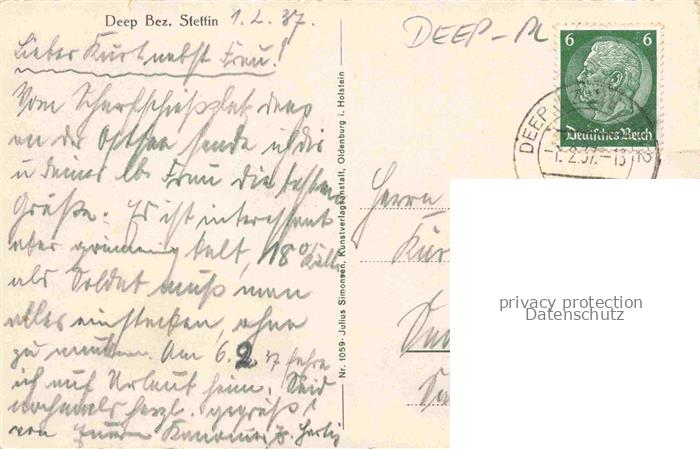 Deep Bez. Stettin 1.2.37.
DEEP-PL
Lieber Kurt nebst Frau!
Vom Scharfschießplatz Deep
an der Ostsee sende ich dir
u deiner lb. Frau die besten
Grüße. Es ist interessant
aber grimmig kalt, 18° Kälte
als Soldat muß man
alles einstecken, ohne
zu Am 6.2.37 fahre
ich auf Urlaub heim. Seid
nochmals herzl. gegrüßt
von Eurem Kanonier
Nr. 1059 · Julius Simonsen, Kunstverlagsanstalt, Oldenburg i. Holstein
6 6
Deutsches Reich
DEEP
-1.2.37.-13
Herrn
privacy protection
Datenschutz